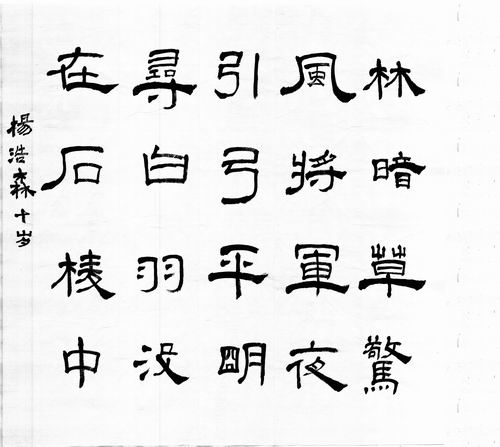 林暗草驚
風將軍夜
引弓平明
尋白羽没
在石棱中
楊浩森十岁